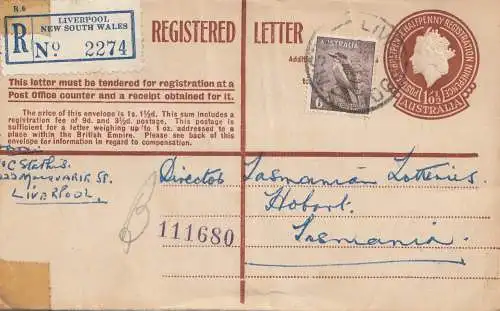 R.6
LIVERPOOL
NEW SOUTH WALES
R No 2274
REGISTERED LETTER
This letter must be tendered for registration at a
Post Office counter and a receipt obtained for it.
The price of this envelope is 1s. 1½d. This sum includes a
registration fee of 9d. and 3½d. postage. This postage is
sufficient for a letter weighing up to 1 oz. addressed to a
place within the British Empire. Please see back of this
envelope for information in regard to compensation.
AUSTRALIA
6
POSTAGE
HALFPENNY REGISTRATION
AUSTRALIA
LIVERPOOL
Director Tasmanian Lotteries
Hobart
Tasmania
B
111680